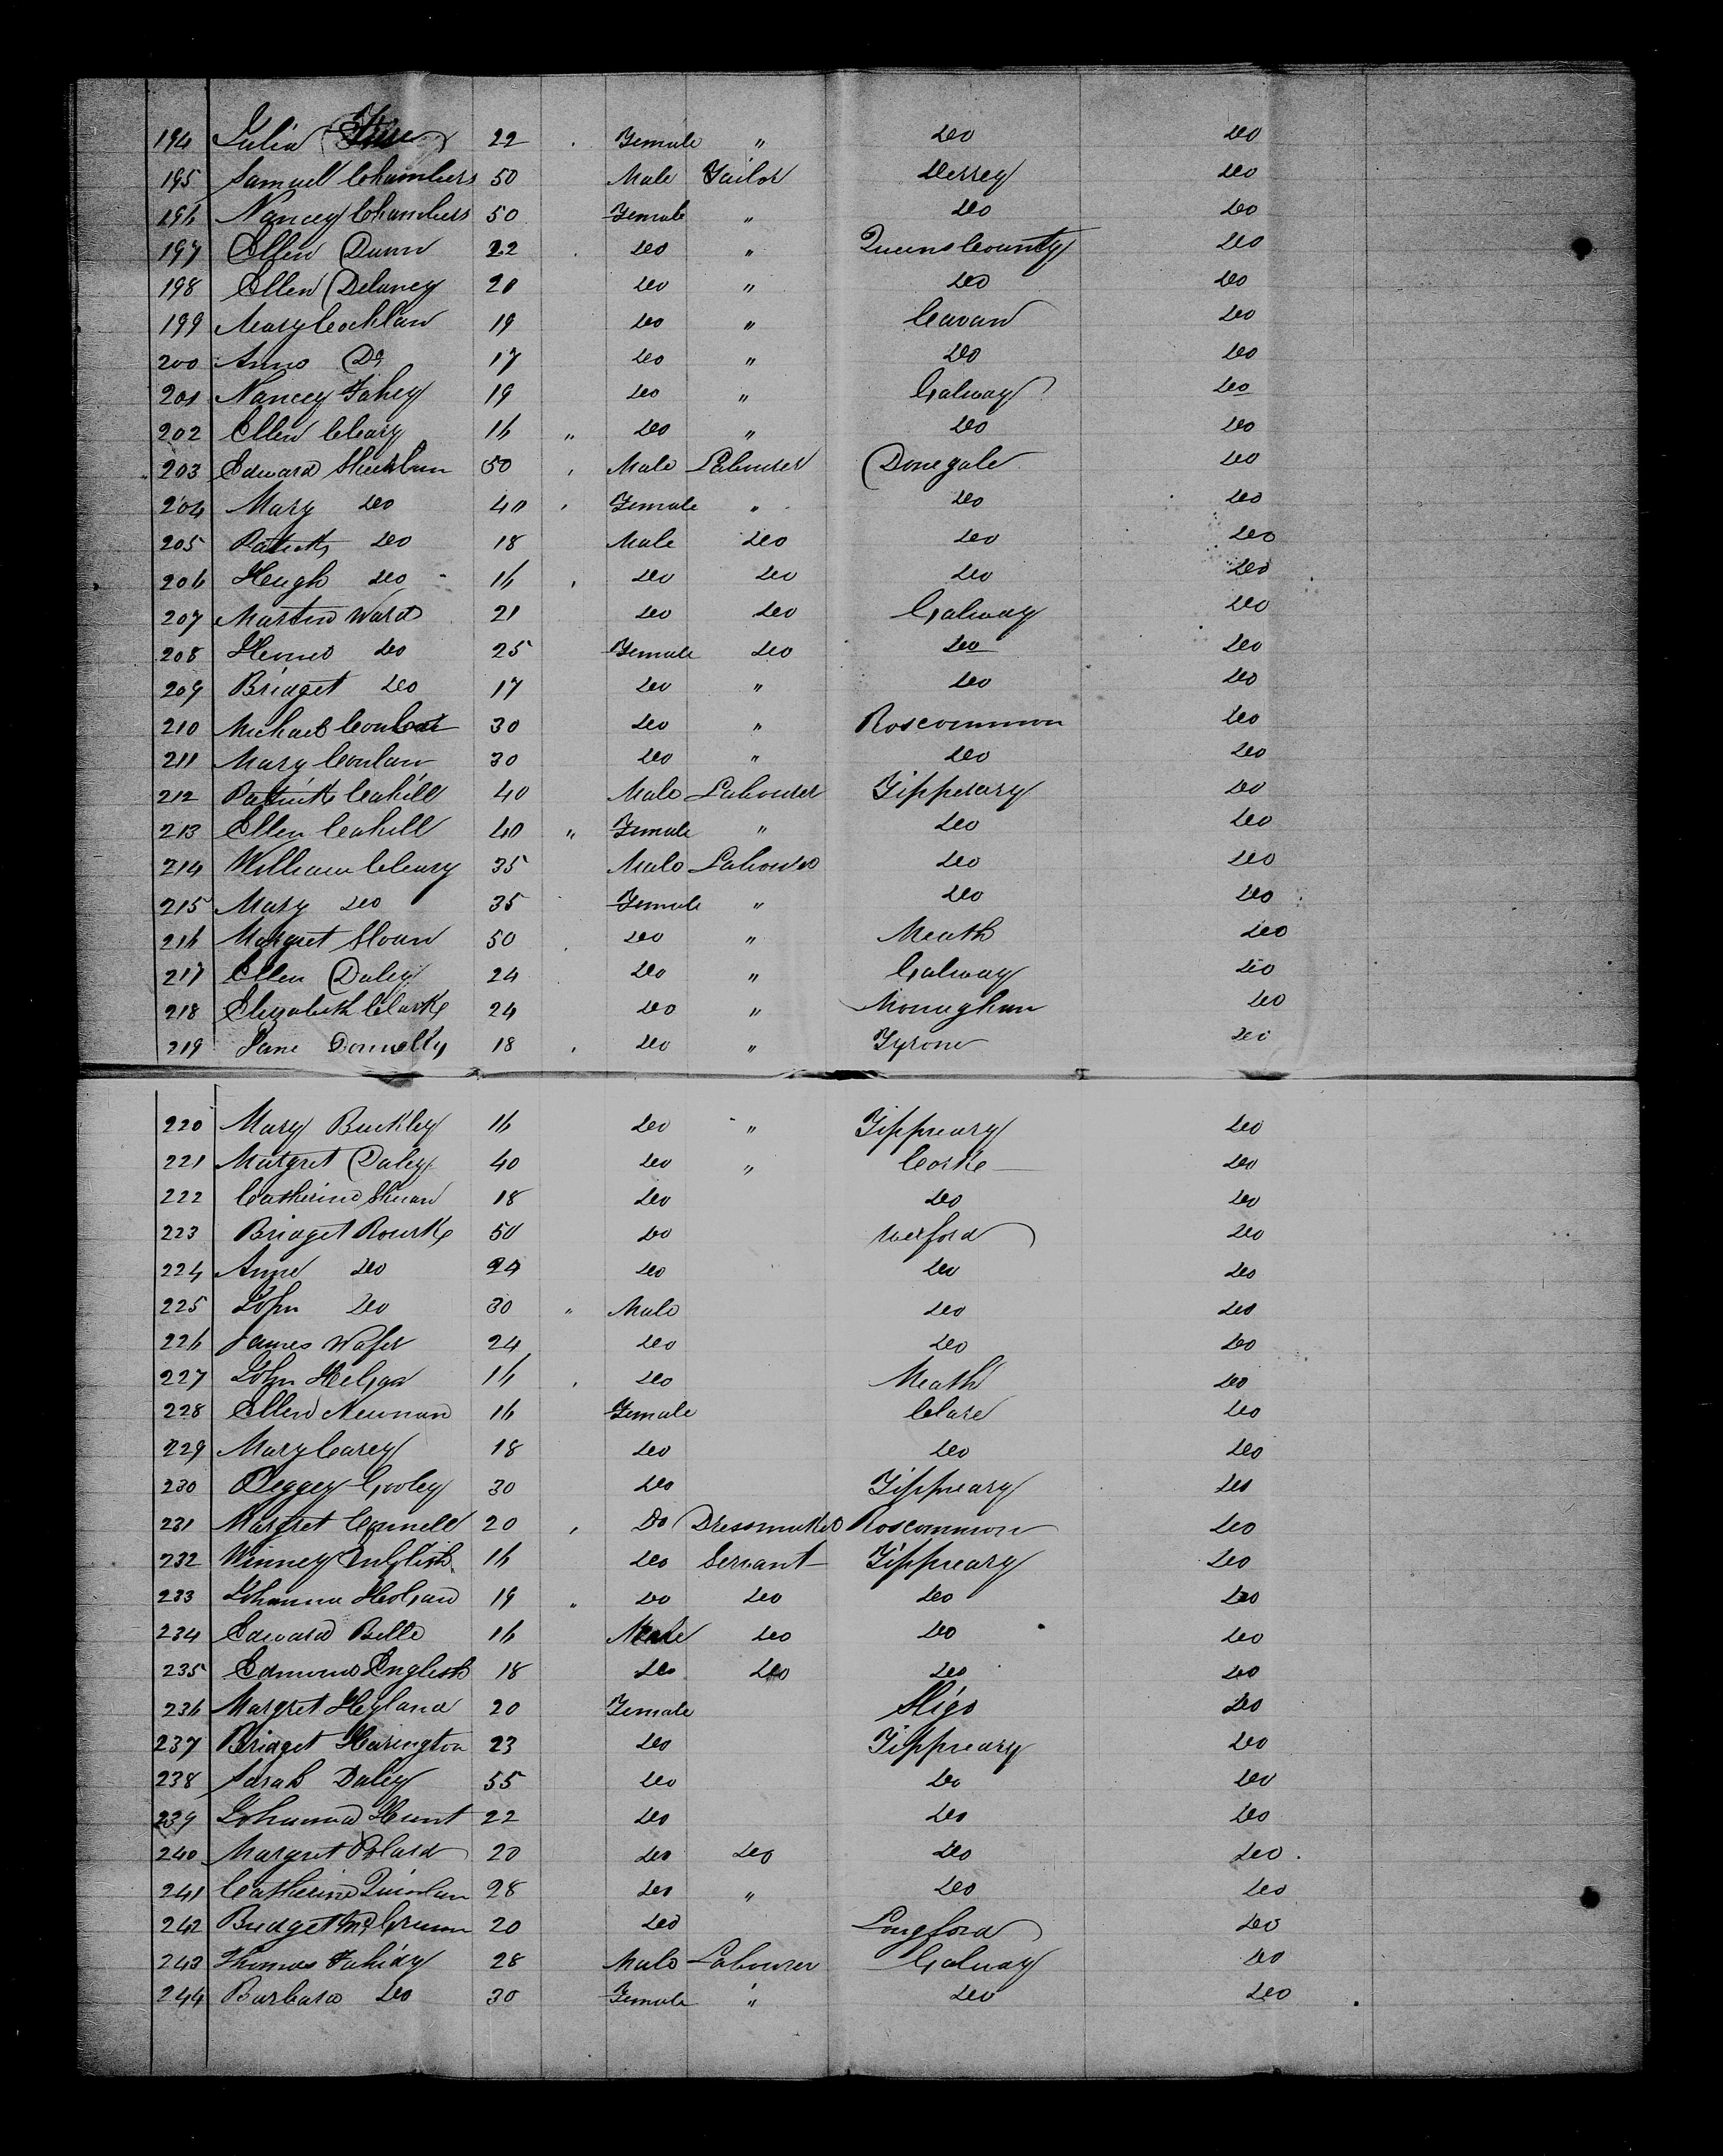 194 Julia 22 Female " Do Do
195 Samuell Chambers 50 Male Tailor Derrey Do
196 Nancey Chambers 50 Female " Do Do
197 Ellen Dunn 22 Do " Queens County Do
198 Ellen Delaney 20 Do " Do Do
199 Mary Cochlan 19 Do " Cavan Do
200 Anno Do 17 Do " Do Do
201 Nancey Fahey 19 Do " Galway Do
202 Ellen Cleary 16 " Do " Do Do
203 Edward 50 Male Labourer Donegale Do
204 Mary Do 40 Female " Do Do
205 Patrick Do 18 Male Do Do Do
206 Hugh Do 16 Do Do Do Do
207 Martin Ward 21 Do Do Galway Do
208 Do 25 Female Do Do Do
209 Bridget Do 17 Do " Do Do
210 Michael 30 Do " Roscommon Do
211 Mary Conlan 30 Do " Do Do
212 Patrick Cahill 40 Male Labourer Tipperary Do
213 Ellen Cahill 40 " Female " Do Do
214 William Cleary 35 Male Labourer Do Do
215 Mary Do 35 Female " Do Do
216 Margret Sloan 50 Do " Meath Do
217 Ellen Daley 24 Do " Galway Do
218 Elizabeth Clarke 24 Do " Monaghan Do
219 Jane Donnelly 18 Do " Tyrone Do
220 Mary Buckley 16 Do " Tippreary Do
221 Margret Daley 40 Do " Corke Do
222 Catherine 18 Do Do Do
223 Bridget Rourke 50 Do Wexford Do
224 Anne Do 24 Do Do Do
225 John Do 30 " Male Do Do
226 James Wafer 24 Do Do Do
227 John 16 Do Meath Do
228 Ellen Neunan 16 Female Clare Do
229 Mary Carey 18 Do Do Do
230 Peggey Gooley 30 Do Tippreary Do
231 Margret Connell 20 Do Dressmaker Roscommon Do
232 Winney English 16 Do Servant Tippreary Do
233 Johanna Hogan 19 " Do Do Do Do
234 Edward Belle 16 Male Do Do Do
235 Edmund English 18 Do Do Do Do
236 Margret Hyland 20 Female Sligo Do
237 Bridget Harington 23 Do Tippreary Do
238 Sarah Daley 55 Do Do Do
239 Johanna Hunt 22 Do Do Do
240 Margret Polard 20 Do Do Do Do
241 Catherine Quinlan 28 Do " Do Do
242 Bridget 20 Do Longford Do
243 Thomas Fahidy 28 Male Labourer Galway Do
244 Barbara Do 30 Female " Do Do